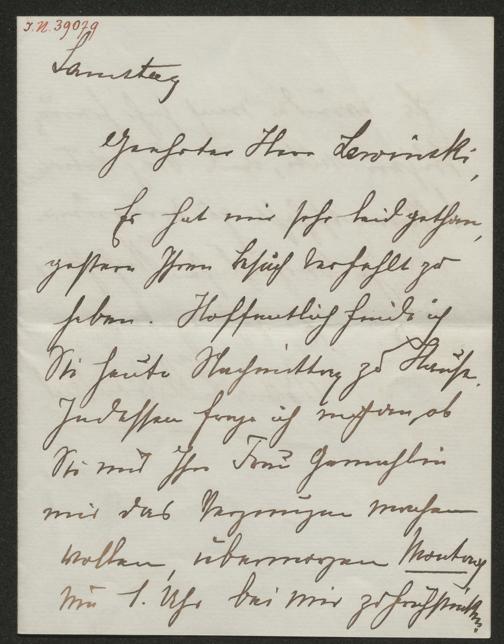 I.N. 39079
Samstag
Geehrter Herr Lewinski,
Es hat mir sehr leid gethan,
gestern Ihren Besuch verfehlt zu
haben. Hoffentlich finde ich
Sie heute Nachmittag zu Hause.
Indessen frage ich an, ob
Sie und Ihre Frau Gemahlin
mir das Vergnügen machen
wollten, übermorgen Montag
um 1. Uhr bei mir zu frühstücken.